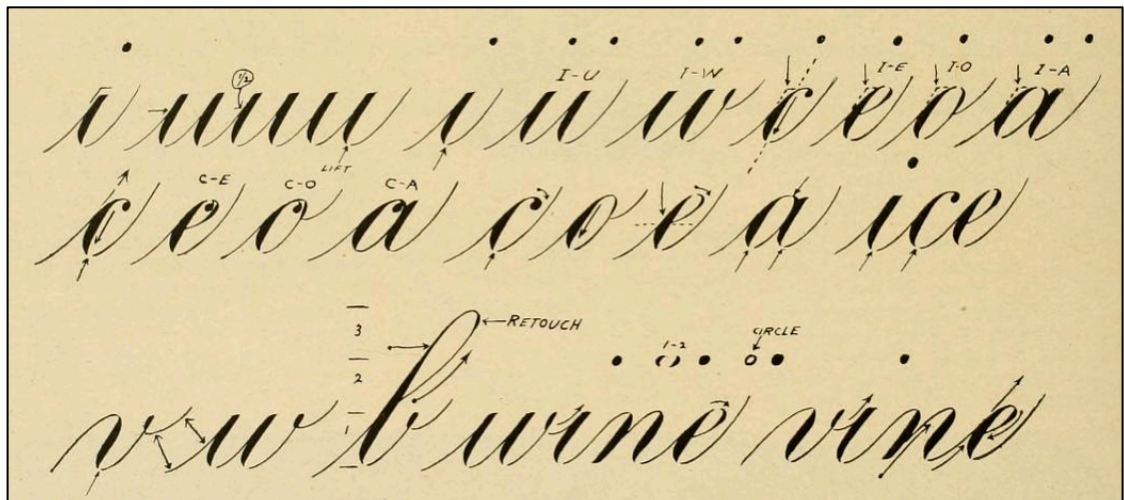 1/2 I-U I-W I-E I-O I-A
i uuu i u w c e o a
LIFT
C-E C-O C-A
c e o a c o e a ice
3 RETOUCH
1-2 CIRCLE
2
1
v w b wine vine